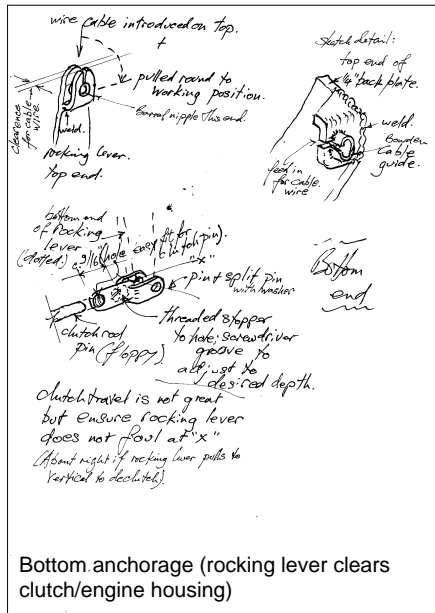 wire cable introduced on top.
+
pulled round to
working position.
Barrel nipple this end.
clearance
for cable
wire.
weld.
rocking lever.
top end.
sketch detail:
top end of
1/4" back plate.
weld.
Bowden
cable
guide.
feed in
for cable
wire
bottom end
of rocking
lever
(dotted)
9/16" hole easy fit for
clutch pin).
"x"
pin + split pin
with washer
clutch rod
pin (floppy).
threaded stopper
to hole; screwdriver
groove to
adjust to
desired depth.
Bottom
end
clutch travel is not great
but ensure rocking lever
does not foul at "x"
(About right if rocking lever pulls to
vertical to declutch).
Bottom anchorage (rocking lever clears
clutch/engine housing)